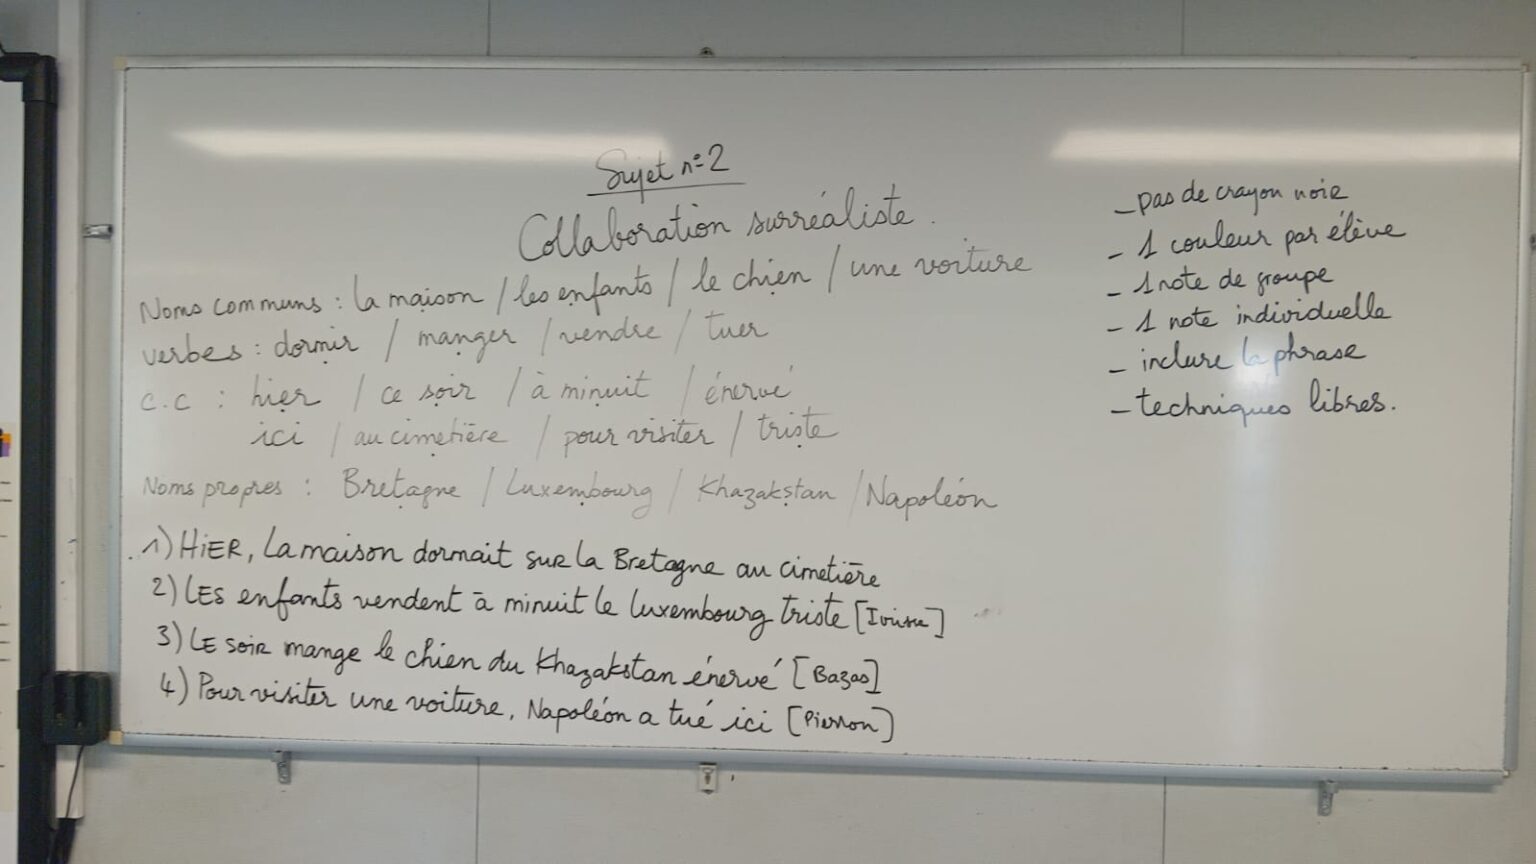 Sujet n°2
Collaboration surréaliste.
Noms communs : la maison / les enfants / le chien / une voiture
verbes : dormir / manger / vendre / tuer
c.c : hier / ce soir / à minuit / énervé
ici / au cimetière / pour visiter / triste
Noms propres : Bretagne / Luxembourg / Khazakstan / Napoléon
1) HIER, la maison dormait sur la Bretagne au cimetière
2) LES enfants vendent à minuit le luxembourg triste
3) LE SOIR mange le chien du Khazakstan énervé [Bazas]
4) Pour visiter une voiture, Napoléon a tué ici [Pierron]
- pas de crayon noir
- 1 couleur par élève
- 1 note de groupe
- 1 note individuelle
- inclure la phrase
- techniques libres.